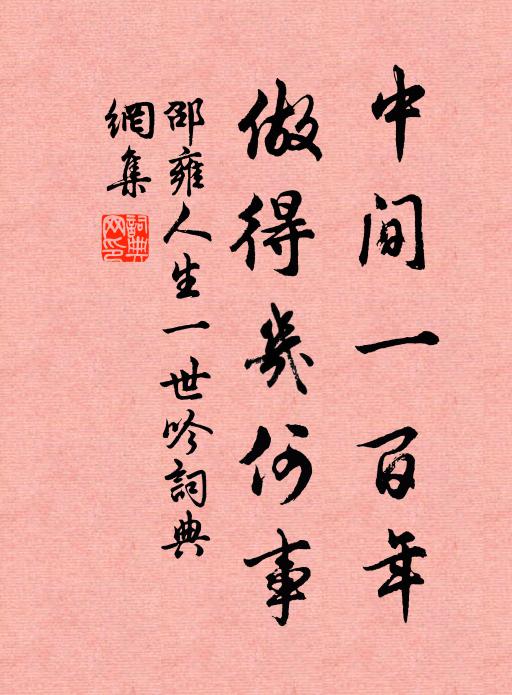 中間一百年
做得幾何事
邵雍人生一世吟詞典
網集
詞典
网印